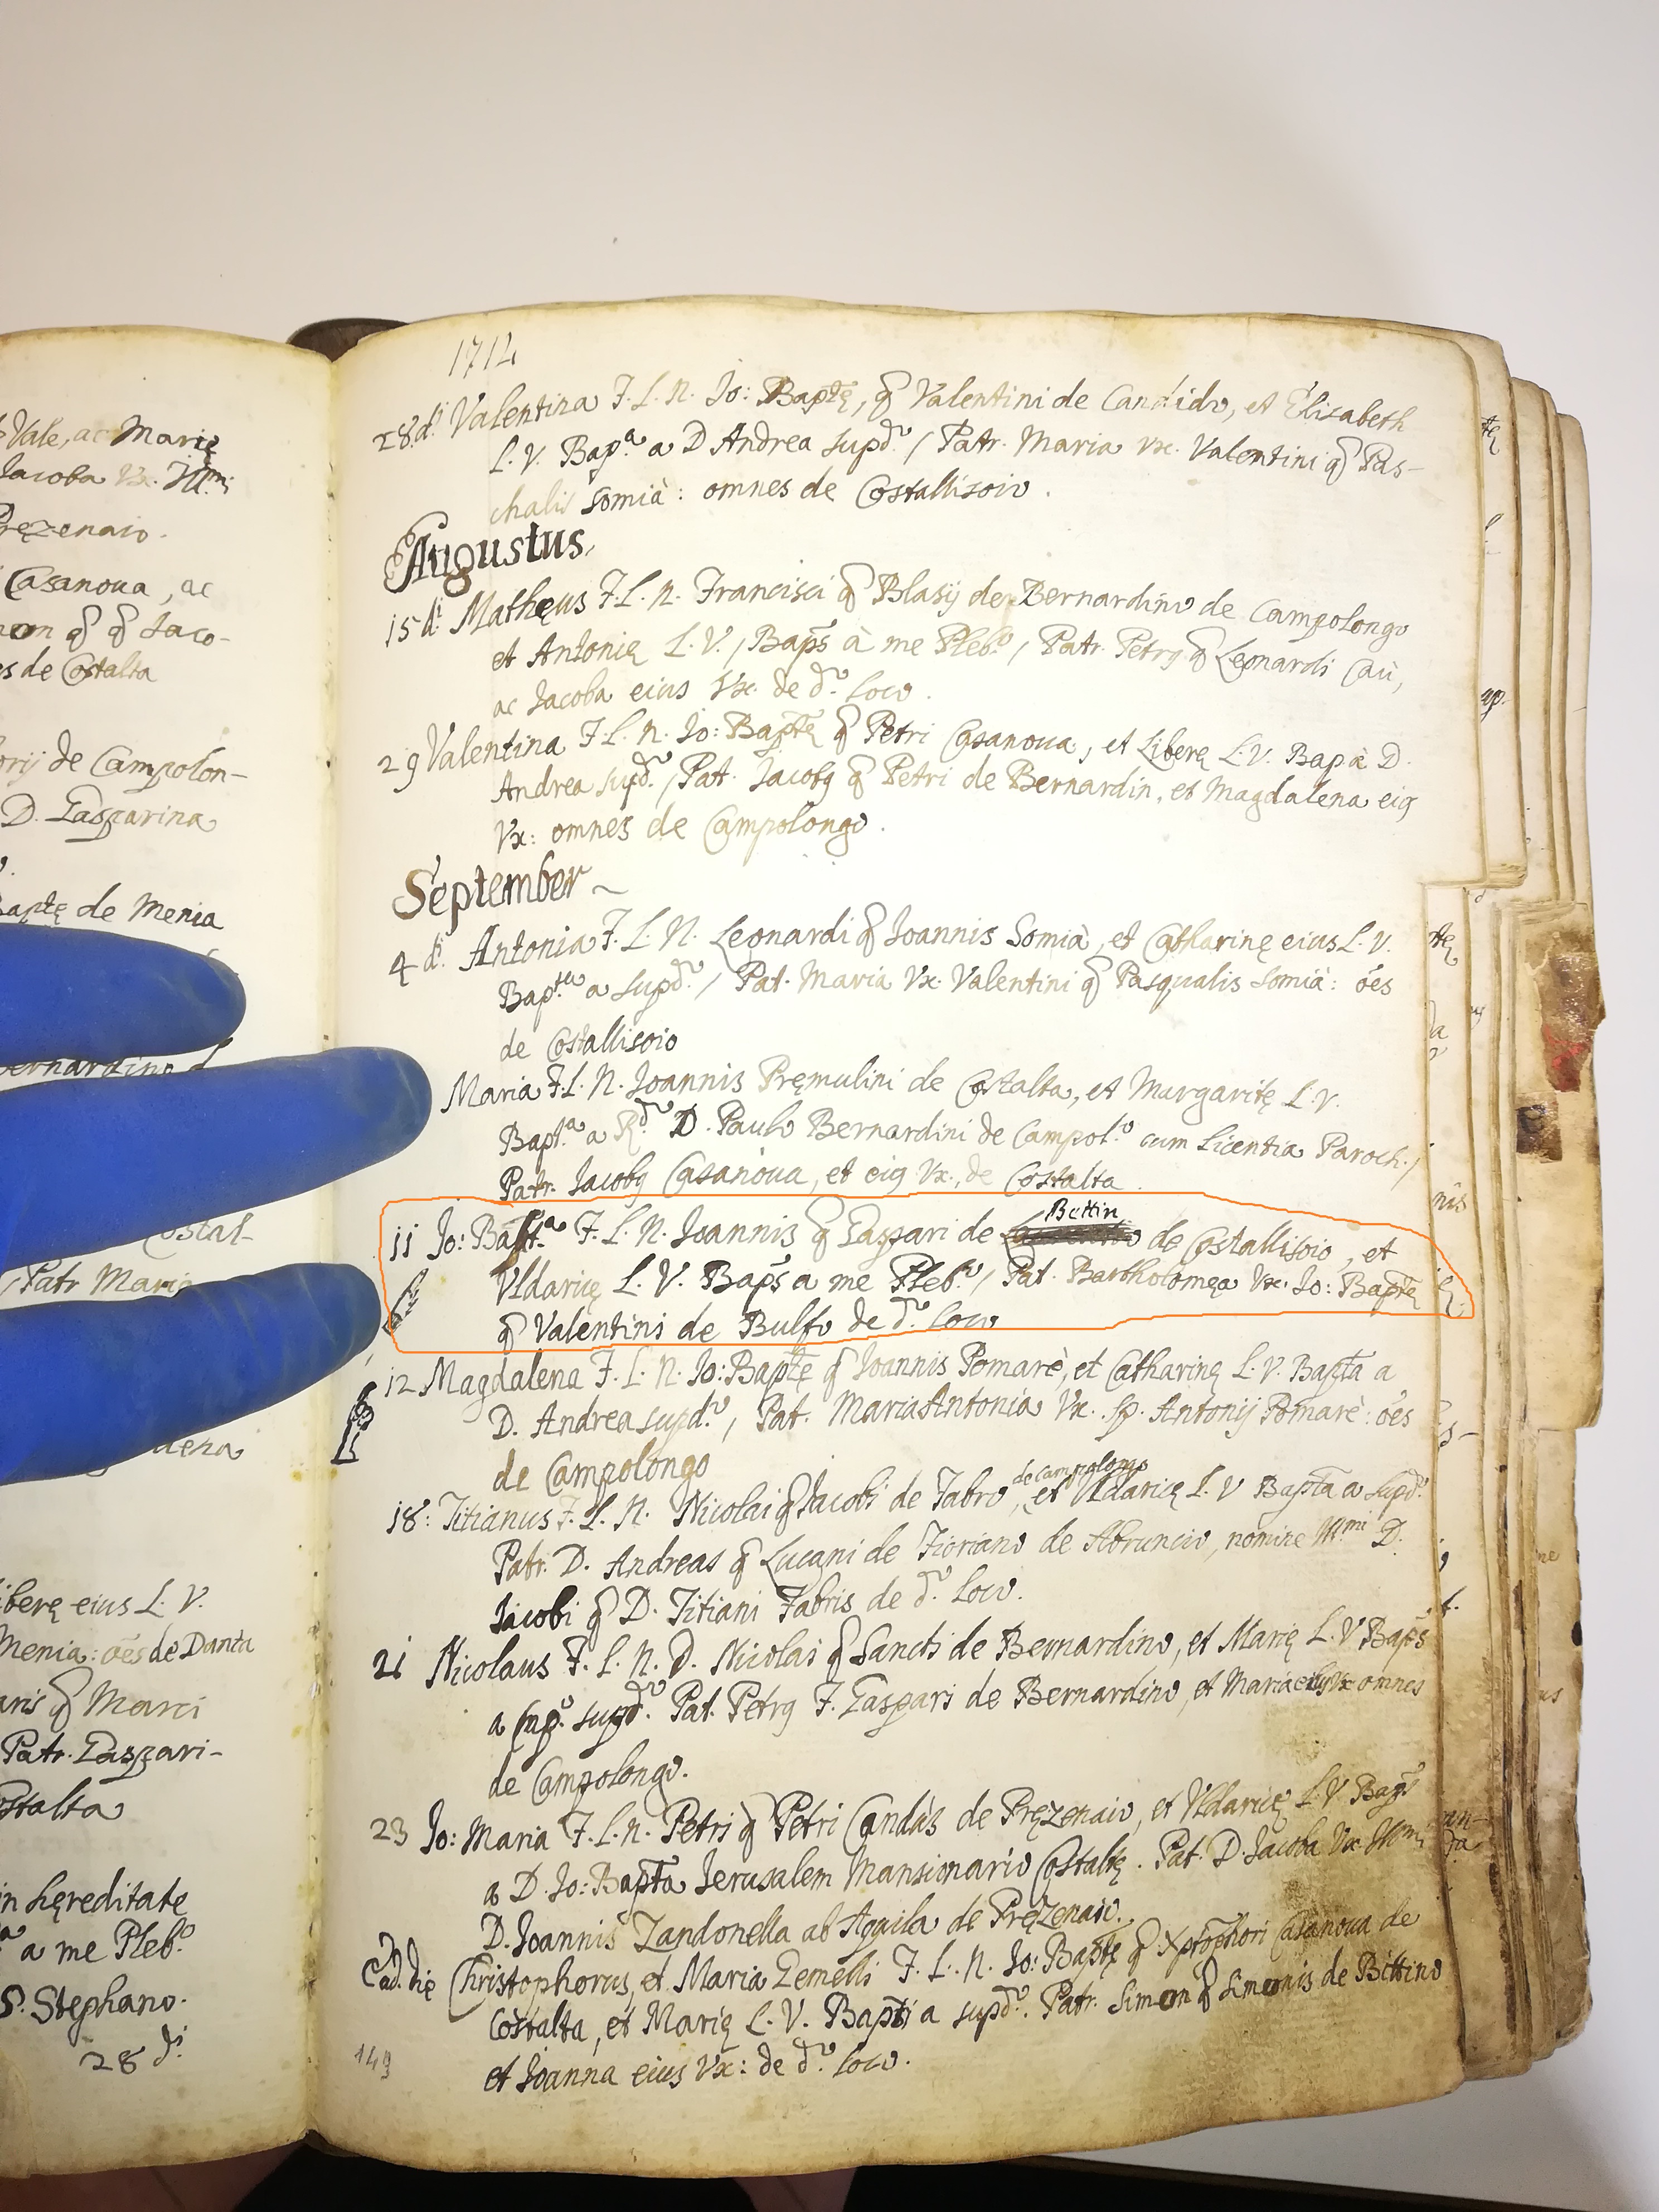 Vale, ac Marię
Jacoba Vx. Ill.mi
Pręzenaio.
Casanoua, ac
Jaco-
s de Costalta
de Campolon-
D. Gasparina
Baptę de Menia
Costal-
Patr Maria
iberę eius L. V.
Menia: oēs de Danta
Marci
Patr. Gaspari-
ostalta
in hęreditate
a me Pleb.o
S. Stephano.
28 d.i
1714
28 d.i Valentina F. L. N. Jo: Baptę, q Valentini de Candido, et Elisabeth
L. V. Bap.a a D Andrea supd.o / Patr. Maria Vx. Valentini q Pas-
chalis Somià: omnes de Costallisoio.
Augustus
15 d.i Mathęus F. L. N. Francisci q Blasij de Bernardino de Campolongo
et Antonię L. V. / Baps à me Pleb.o / Patr. Petrg q Leonardi Caù,
ac Jacoba eius Vx. de d.o Loco.
29 Valentina F. L. N. Jo: Baptę q Petri Casanoua, et Liberę L. V. Bap à D.
Andrea supd.o / Pat. Jacobg q Petri de Bernardin, et Magdalena eig
Vx: omnes de Campolongo.
September
4 d.i Antonia F. L. N. Leonardi q Joannis Somià, et Catharinę eius L. V.
Bap.ta a supd.o / Pat. Maria Vx. Valentini q Pasqualis Somià: oēs
de Costallisoio
Maria F. L. N. Joannis Pręmulini de Costalta, et Margaritę L. V.
Bapt.a a R.do D. Paulo Bernardini de Campol.o cum Licentia Paroch. /
Patr. Jacobg Casanoua, et eig Vx., de Costalta.
Bettin
11 Jo: Bapt.a F. L. N. Joannis q Gaspari de de Costallisoio, et
Vldaricę L. V. Baps a me Pleb.o / Pat. Bartholomęa Vx. Jo: Baptę
q Valentini de Bulfo de d.o Loco
12 Magdalena F. L. N. Jo: Baptę q Joannis Pomarè, et Catharinę L. V. Bapta a
D. Andrea supd.o, Pat. Maria Antonia Vx. Sp. Antonij Pomarè: oēs
de Campolongo
de Campolongo
18: Titianus F. L. N. Nicolai q Jacobi de Fabro, et Vldaricę L. V Bapta a supd.o
Patr. D. Andreas q Lucani de Floriano de Abruncio, nomine Ill.mi D.
Jacobi q D. Titiani Fabris de d.o Loco.
21 Nicolaus F. L. N. D. Nicolai q Sancti de Bernardino, et Marię L. V Baps
a supd.o Pat. Petrg F. Gaspari de Bernardino, et Maria Vx omnes
de Campolongo.
23 Jo: Maria F. L. N. Petri q Petri Candas de Pręzenaio, et Vldaricę L. V Baps
a D. Jo: Bapta Jerusalem Mansionario Costaltę. Pat. D. Jacoba Vx. Ill.mi
D. Joannis Zandonella ab Aquila de Pręzenaio.
Ead. die Christophorus, et Maria Gemelli F. L. N. Jo: Baptę q Xptophori Casanoua de
Costalta, et Marię L. V. Bapti a supd.o. Patr. Simon q Simonis de Bittino
et Joanna eius Vx: de d.o Loco.
149